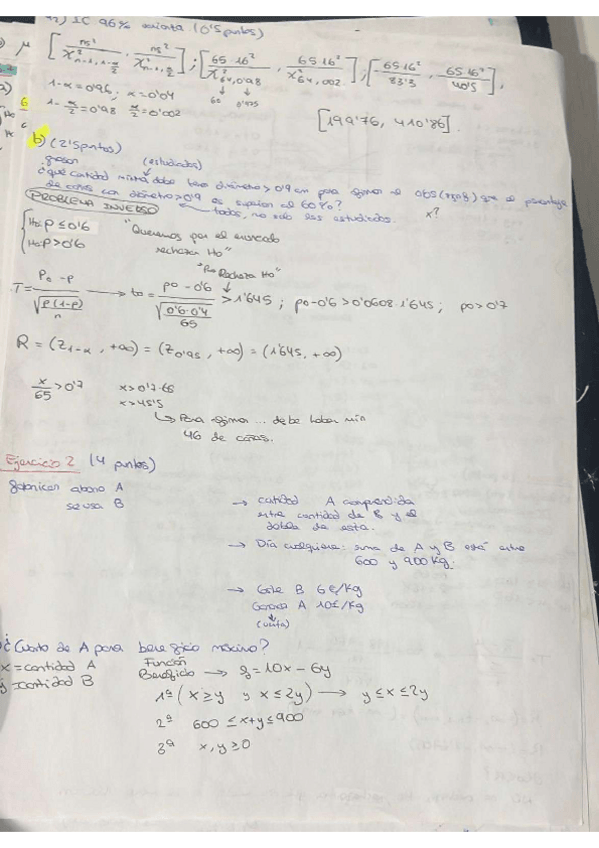 a2) IC 96% varianza (0'5 puntos)
μ [ns²/χ²n-1, 1-α/2 , ns²/χ²n-1, α/2] ; [65·16²/χ²64, 0'98 , 65·16²/χ²64, 0'02] ; [65·16²/83'3 , 65·16²/40'5] ,
1-α=0'96 ; α=0'04
1-α/2=0'98 α/2=0'002
[199'76, 410'86].
b) (2'5 puntos)
(estudiados)
¿qué cantidad mínima debe tener diámetro > 0'9 cm para afirmar al 0'05 que el porcentaje
de cañas con diámetro > 0'9 es superior al 60%?
PROBLEMA INVERSO todos, no solo los estudiados. x?
H0: P ≤ 0'6 "Queremos por el enunciado
H0: P > 0'6 rechazar H0"
"Por Rechazar H0"
T = P0 - P / √P(1-P)/n → t0 = p0 - 0'6 / √0'6·0'4/65 > 1'645 ; p0 - 0'6 > 0'0608·1'645 ; p0 > 0'7
R = (Z1-α, +∞) = (Z0'95, +∞) = (1'645, +∞)
x/65 > 0'7 x > 0'7·65
x > 45'5
↳ Para afirmar ... debe haber mín
46 de cañas.
Ejercicio 2 (4 puntos)
abono A
se usa B
→ cantidad A comprendida
entre cantidad de B y el
doble de esta.
→ Día cualquiera: suma de A y B está entre
600 y 900 kg.
→ B 6€/kg
A 10€/kg
(venta)
¿Cuánto de A para beneficio máximo?
x = cantidad A Función
y = cantidad B Beneficio → z = 10x - 6y
1ª (x ≥ y y x ≤ 2y) → y ≤ x ≤ 2y
2ª 600 ≤ x+y ≤ 900
3ª x, y ≥ 0